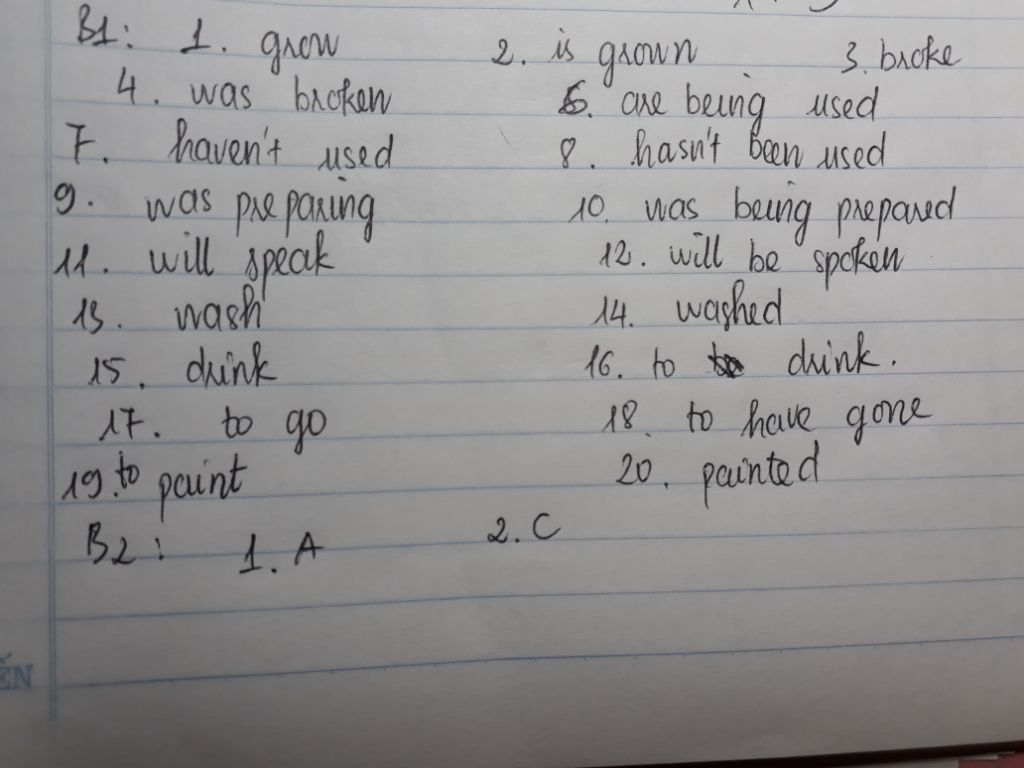 B1: 1. grow 2. is grown 3. broke
4. was broken 6. are being used
7. haven't used 8. hasn't been used
9. was preparing 10. was being prepared
11. will speak 12. will be spoken
13. wash 14. washed
15. drink 16. to drink.
17. to go 18. to have gone
19. to paint 20. painted
B2: 1. A 2. C
ẾN